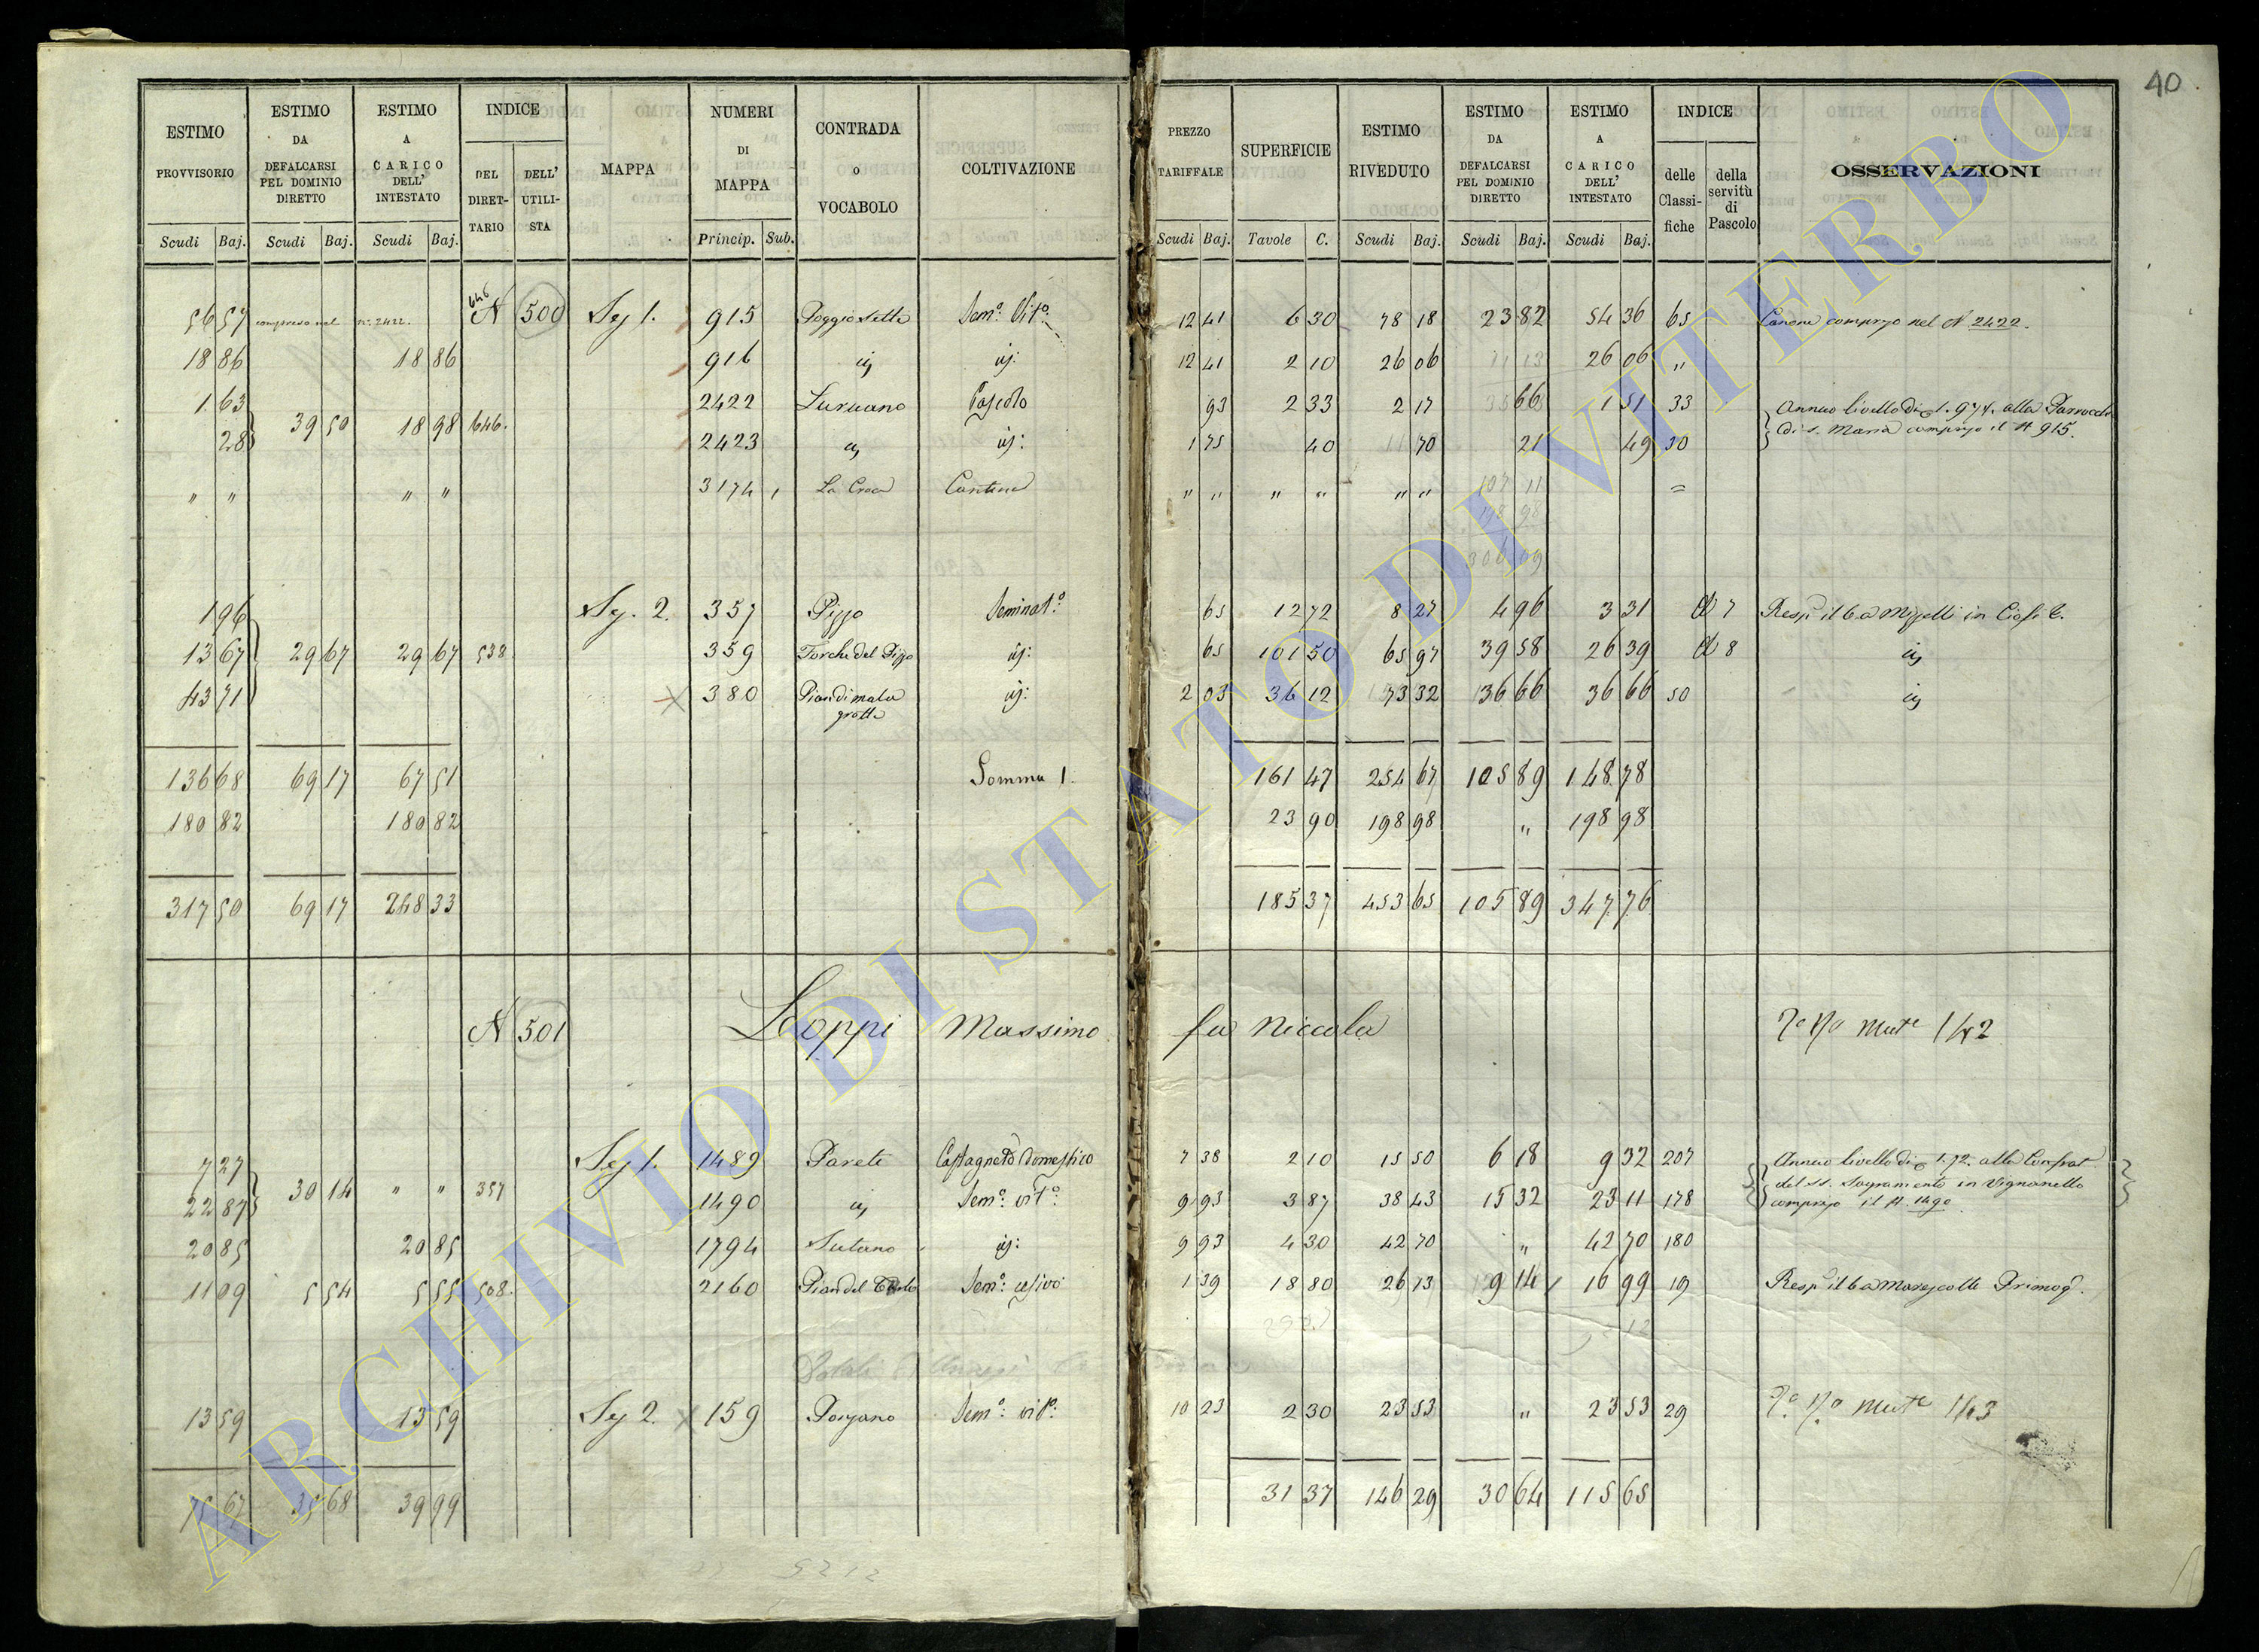 40.
ESTIMO PROVVISORIO | ESTIMO DA DEFALCARSI PEL DOMINIO DIRETTO | ESTIMO A CARICO DELL' INTESTATO | INDICE DEL DIRETTARIO | DELL' UTILISTA | MAPPA | NUMERI DI MAPPA | CONTRADA o VOCABOLO | COLTIVAZIONE | PREZZO TARIFFALE | SUPERFICIE | ESTIMO RIVEDUTO | ESTIMO DA DEFALCARSI PEL DOMINIO DIRETTO | ESTIMO A CARICO DELL' INTESTATO | INDICE delle Classifiche | della servitù di Pascolo | OSSERVAZIONI
Scudi Baj. | Scudi Baj. | Scudi Baj. | Princip. Sub. | Scudi Baj. | Tavole C. | Scudi Baj. | Scudi Baj. | Scudi Baj.
56 57 | compreso nel n. 2422. | 646 N 500 | Sez 1. | 915 | Poggio Sette | Sem.o Vit.o | 12 41 | 6 30 | 78 18 | 23 82 | 54 36 | 65 | Canone compreso nel N 2422.
18 86 | 18 86 | 916 | 12 41 | 2 10 | 26 06 | 26 06 | "
1 63 | 39 50 | 18 98 | 646. | 2422 | Pascolo | 93 | 2 33 | 2 17 | 66 | 1 51 | 33 | Annuo livello di 1.974. alla Parrocchia
28 | 2423 | 1 75 | 40 | 70 | 21 | 49 | 30 | di S. Maria compreso il N 915.
" " | " " | 3174 1 | La Croce | Cantina | " " | " " | " " | =
1 96 | Sez. 2. | 357 | Pizzo | Seminat.o | 65 | 12 72 | 8 27 | 4 96 | 3 31 | 7
13 67 | 29 67 | 29 67 | 538. | 359 | Forche del Pizzo | 65 | 101 50 | 65 97 | 39 58 | 26 39 | 8
43 71 | 380 | Pian di mala grotta | 2 03 | 36 12 | 73 32 | 36 66 | 36 66 | 50
136 68 | 69 17 | 67 51 | Somma 1. | 161 47 | 254 67 | 105 89 | 148 78
180 82 | 180 82 | 23 90 | 198 98 | " | 198 98
317 50 | 69 17 | 248 33 | 185 37 | 453 65 | 105 89 | 347 76
N 501 | Scoppi Massimo fu Niccola | 142
7 27 | 30 14 | " " | 357 | Sez 1. | 1489 | Parete | Castagneto Domestico | 7 38 | 2 10 | 15 50 | 6 18 | 9 32 | 207 | Annuo livello di 1.72. alla Confrat
22 87 | 1490 | Sem.o vit.o | 9 93 | 3 87 | 38 43 | 15 32 | 23 11 | 178 | del SS. Sagramento in Vignanello compreso il N. 1490
20 85 | 20 85 | 1794 | Sutano | 9 93 | 4 30 | 42 70 | " | 42 70 | 180
11 09 | 5 54 | 5 55 | 508. | 2160 | Pian del | Sem.o | 1 39 | 18 80 | 26 13 | 9 14 | 16 99 | 19
13 59 | 13 59 | Sez 2. | 159 | Sem.o vit.o | 10 23 | 2 30 | 23 53 | " | 23 53 | 29 | 143
67 | 35 68 | 39 99 | 31 37 | 146 29 | 30 64 | 115 65
ARCHIVIO DI STATO DI VITERBO